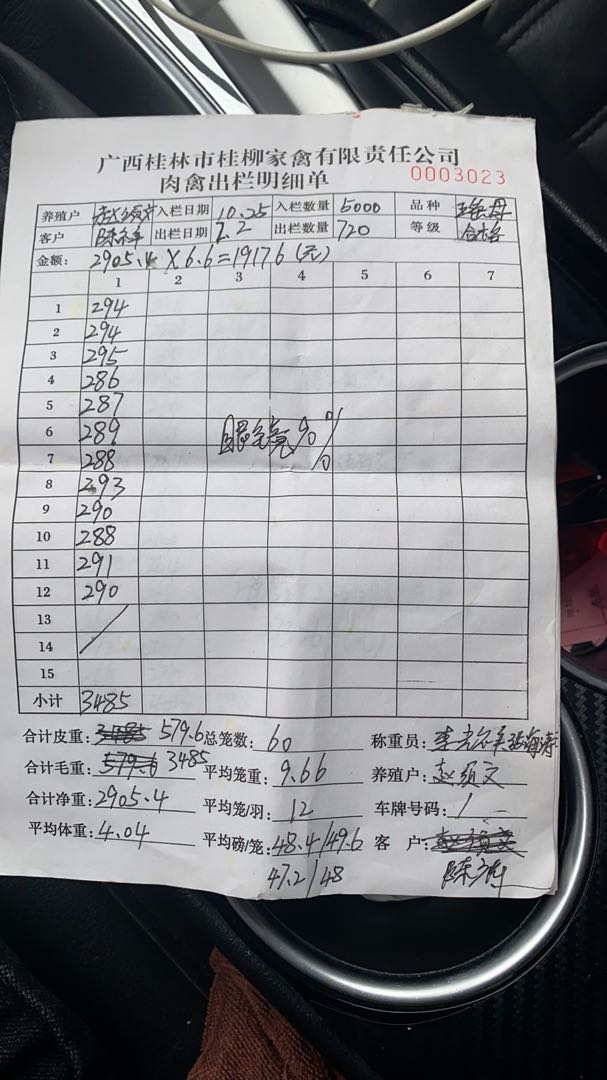 广西桂林市桂柳家禽有限责任公司
肉禽出栏明细单 0003023
养殖户 赵须文 入栏日期 10.25 入栏数量 5000 品种
客户 陈 出栏日期 2.2 出栏数量 720 等级 合格
金额: 2905.4 X6.6=19176(元)
1 2 3 4 5 6 7
1 294
2 294
3 295
4 286
5 287
6 289 眼全亮90%
7 288
8 293
9 290
10 288
11 291
12 290
13
14
15
小计 3485
合计皮重: 3485 579.6 总笼数: 60 称重员: 李
合计毛重: 579.6 3485 平均笼重: 9.66 养殖户: 赵须文
合计净重: 2905.4 平均笼/羽: 12 车牌号码: 1
平均体重: 4.04 平均磅/笼: 48.4/49.6 客 户: 赵须文
47.2/48 陈